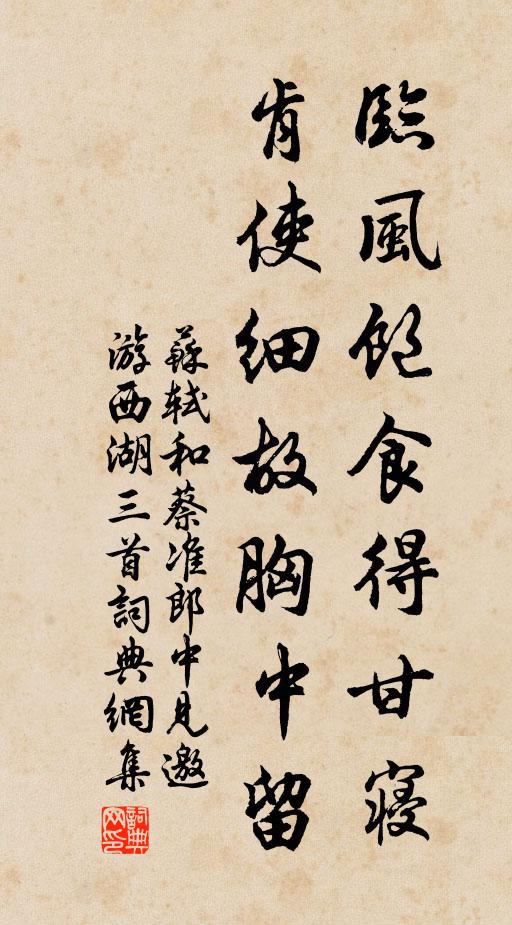 臨風飽食得甘寢
肯使細故胸中留
蘇軾和蔡准郎中見邀
游西湖三首詞典網集
詞典网印